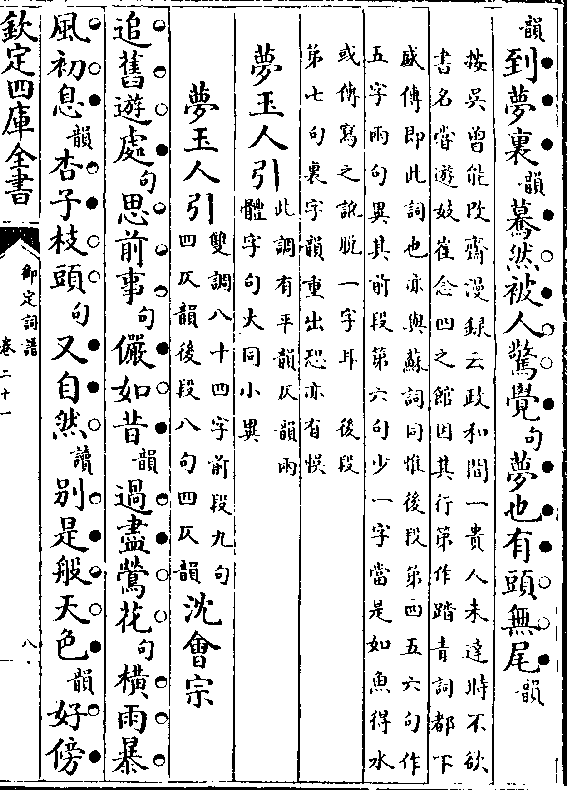 韻到夢裏韻驀然被人驚覺句夢也有頭無尾韻
按吳曾能改齋漫録云政和間一貴人未達時不欲
書名嘗遊妓崔念四之館因其行第作踏青詞都下
盛傳即此詞也亦與蘇詞同惟後段第四五六句作
五字兩句異其前段第六句少一字當是如魚得水
或傳寫之訛脱一字耳　後段
第七句裏字韻重出恐亦有悞
夢玉人引
此調有平韻仄韻兩
體字句大同小異
夢玉人引
雙調八十四字前段九句
四仄韻後段八句四仄韻
沈會宗
追舊遊處句思前事句儼如昔韻過盡鶯花句橫雨暴
風初息韻杏子枝頭句又自然讀别是般天色韻好傍
欽定四庫全書
御定詞譜
卷二十一
八